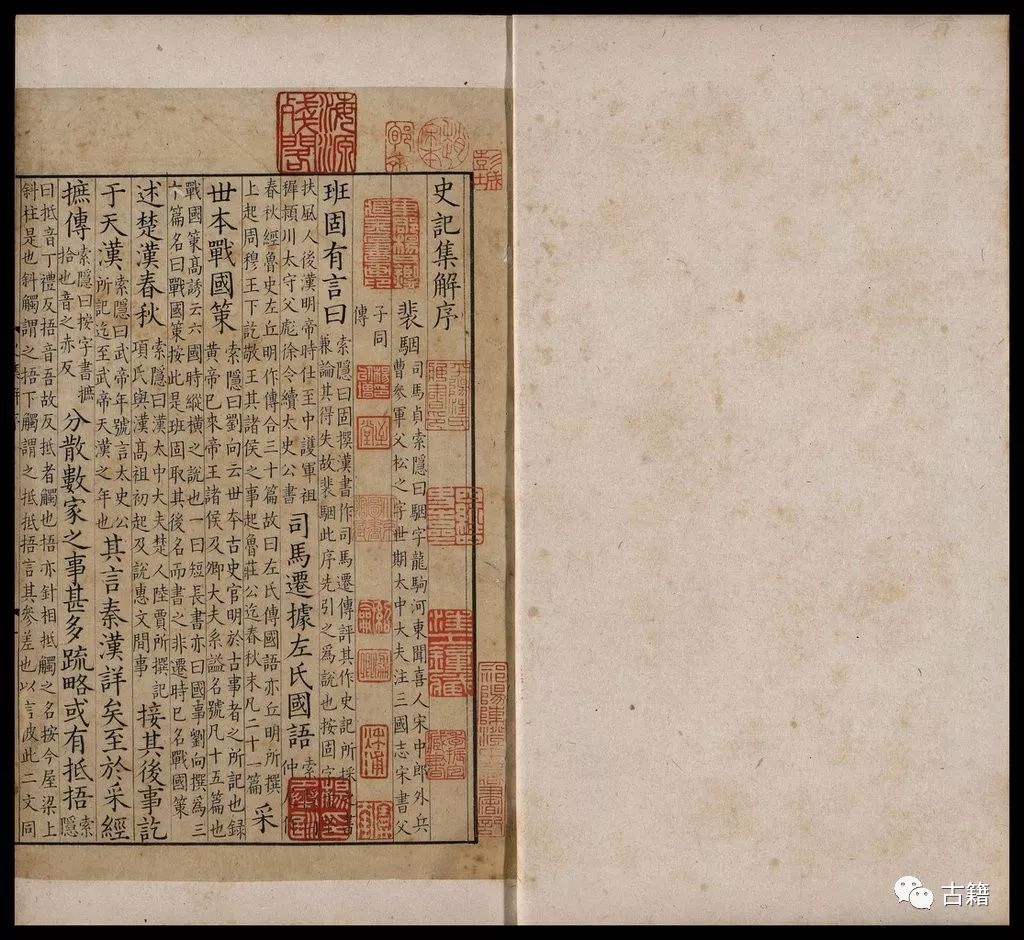 海源殘閣
宋本
彭城
史記集解序
裴駰
司馬貞索隱曰駰字龍駒河東聞喜人宋中郎外兵
曹參軍父松之字世期太中大夫注三國志宋書父
子同
傳
班固有言曰
索隱曰固撰漢書作司馬遷傳評其作史記所採書
兼論其得失故裴駰此序先引之爲說也按固字
扶風人後漢明帝時仕至中護軍祖
穉頴川太守父彪徐令續太史公書
司馬遷據左氏國語
索
仲
春秋經魯史左丘明作傳合三十篇故曰左氏傳國語亦丘明所撰
上起周穆王下訖敬王其諸侯之事起魯莊公迄春秋末凡二十一篇
采
世本戰國策
索隱曰劉向云世本古史官明於古事者之所記也録
黃帝已來帝王諸侯及卿大夫系謚名號凡十五篇也
戰國策高誘云六國時縱橫之說也一曰短長書亦曰國事劉向撰爲三
篇名曰戰國策按此是班固取其後名而書之非遷時已名戰國策
述楚漢春秋
索隱曰漢太中大夫楚人陸賈所撰記
項氏與漢高祖初起及說惠文間事
接其後事訖
于天漢
索隱曰武帝年號言太史公
所記迄至武帝天漢之年也
其言秦漢詳矣至於采經
摭傳
索隱曰按字書摭
拾也音之赤反
分散數家之事甚多疏略或有抵捂
索
隱
曰抵音丁禮反捂音吾故反抵者觸也捂亦針相抵觸之名按今屋梁上
斜柱是也斜觸謂之捂下觸謂之抵抵捂言其參差也以言彼此二文同
古籍